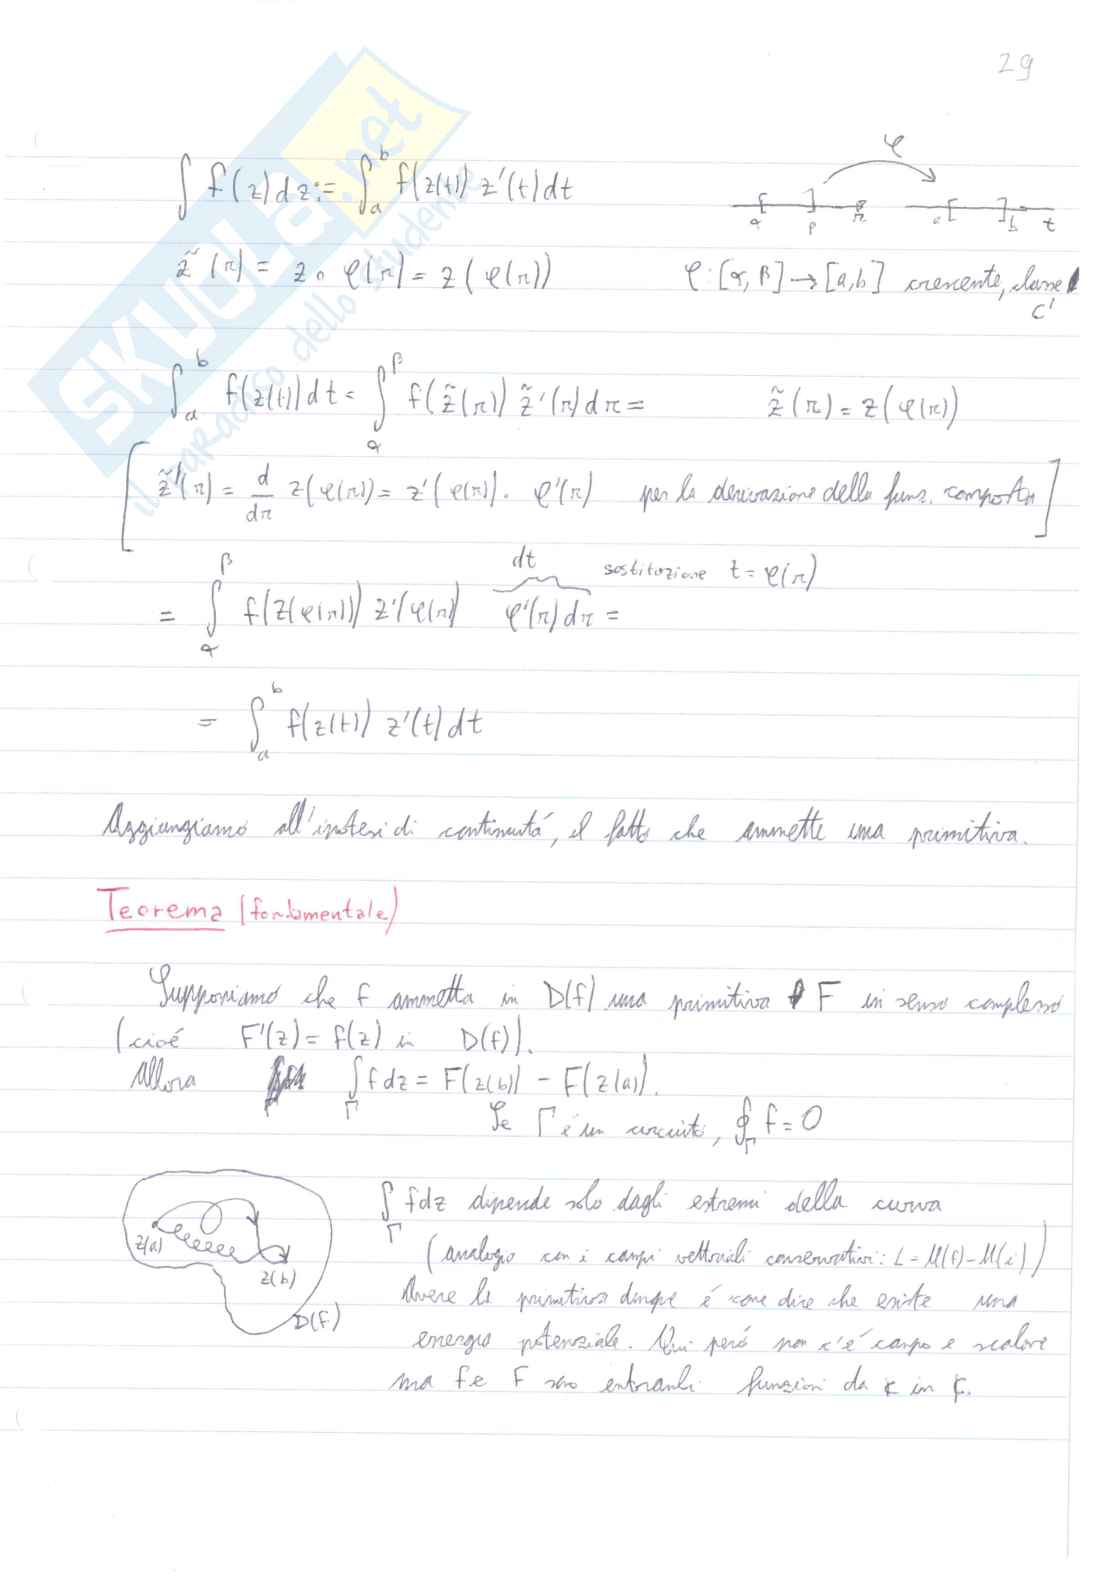 29
∫ f(z)dz := ∫_a^b f(z(t)) z'(t)dt
φ
α β r a b t
z̃(r) = z∘φ(r) = z(φ(r))
φ: [α, β] → [a,b] crescente, classe C¹
∫_a^b f(z(t))dt = ∫_α^β f(z̃(r)) z̃'(r)dr = z̃(r) = z(φ(r))
[z̃'(r) = d/dr z(φ(r)) = z'(φ(r)) · φ'(r) per la derivazione delle funz. composta]
= ∫_α^β f(z(φ(r))) z'(φ(r)) φ'(r)dr = dt sostituzione t = φ(r)
= ∫_a^b f(z(t)) z'(t)dt
Aggiungiamo all'ipotesi di continuitá, il fatto che ammette una primitiva.
Teorema (fondamentale)
Supponiamo che f ammetta in D(f) una primitiva F in senso complesso
(cioé F'(z) = f(z) in D(f)).
Allora ∫_Γ f dz = F(z(b)) - F(z(a)).
Se Γ é un circuito, ∮_Γ f = 0
z(a)
z(b)
D(f)
∫_Γ fdz dipende solo dagli estremi della curva
(analogo con i campi vettoriali conservativi: L = U(f) - U(i))
Avere la primitiva dunque é come dire che esiste una
energia potenziale. Qui peró non c'é campo e scalare
ma f e F sono entrambi funzioni da ℂ in ℂ.
SKUOLA.net
il paradiso dello studente